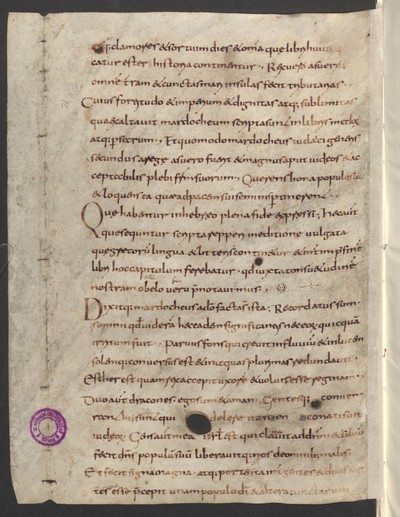 & clamores & sortium dies & omia que libri huius
catur ester historia continentur . Rex u asuer
omne tram & cunctas maris insulas fecit tributarias .
Cuius fortitudo & imperium & dignitas atq; sublimitas
qua exaltavit mardocheum scripta sunt in libris
atq; psarum . Et quomodo mardocheus iudaici generis
secundus a rege asuero fuerit & magnus aput iudeos & ac
ceptabilis plebi frum suorum . Querens bona populo suo
& loquens ea que ad pacem sui seminis ptinerent
Que habentur in hebreo plena fide expressi ; Hec aut
que secuntur scripta repperi in editione vulgata
que grecoru lingua & litteris continetur & int
libri hoc capitulum ferebatur . qd iuxta consuetudine
nostram obelo pnotavimus
Dixitq; mardocheus a do facta st ista ; Recordatus sum
somnii qd videra hec eade significantis nec eoru quicqua
irritum fuit . Parvus fons qui crevit in fluviu & in lucem
solemq; conversus est & in aquas plurimas redundavit .
Esther est quam rex accepit uxore & voluit esse reginam .
Duo aut dracones . ego sum & aman . Gentes q convene
rant hi sunt qui delere nomen conati sunt
iudeoru . Gens aut mea isrl est que clamavit ad dnm &
fecit dns populu suu liberavitq; nos de omnib; malis .
Et fecit signa magna atq; portenta int gentes & duas sor
tes esse pcepit unam populoru di & altera cunctarum